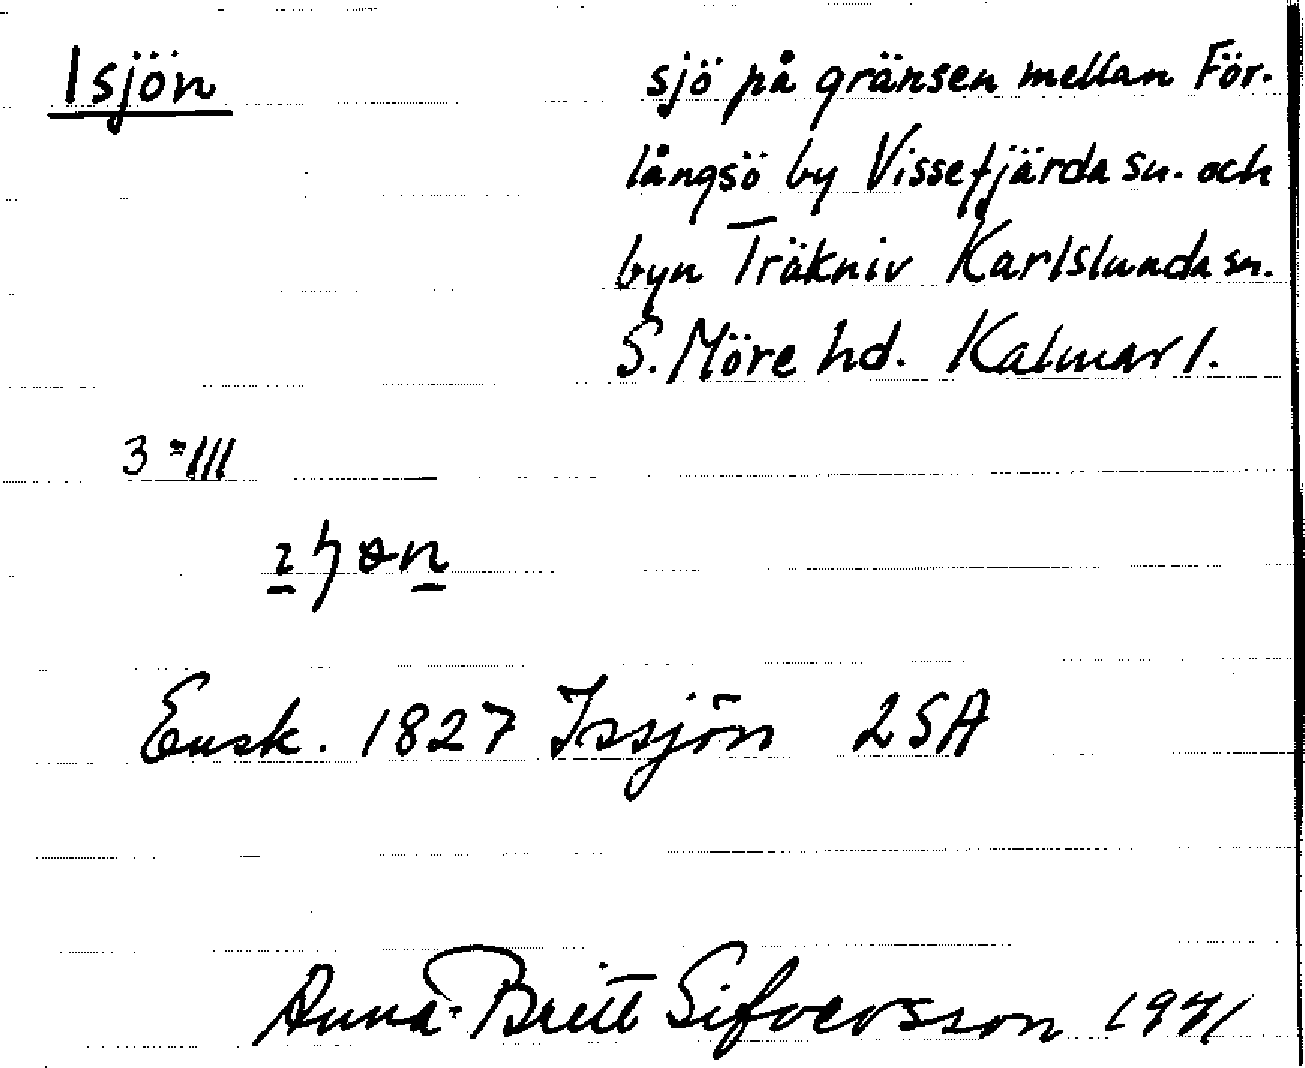 Isjön
sjö på gränsen mellan För-
långsö by Vissefjärda sn. och
byn Träkniv Karlslunda sn.
S. Möre hd. Kalmar l.
Ensk. 1827 Issjön LSA
Anna-Britt Sifversson 1941